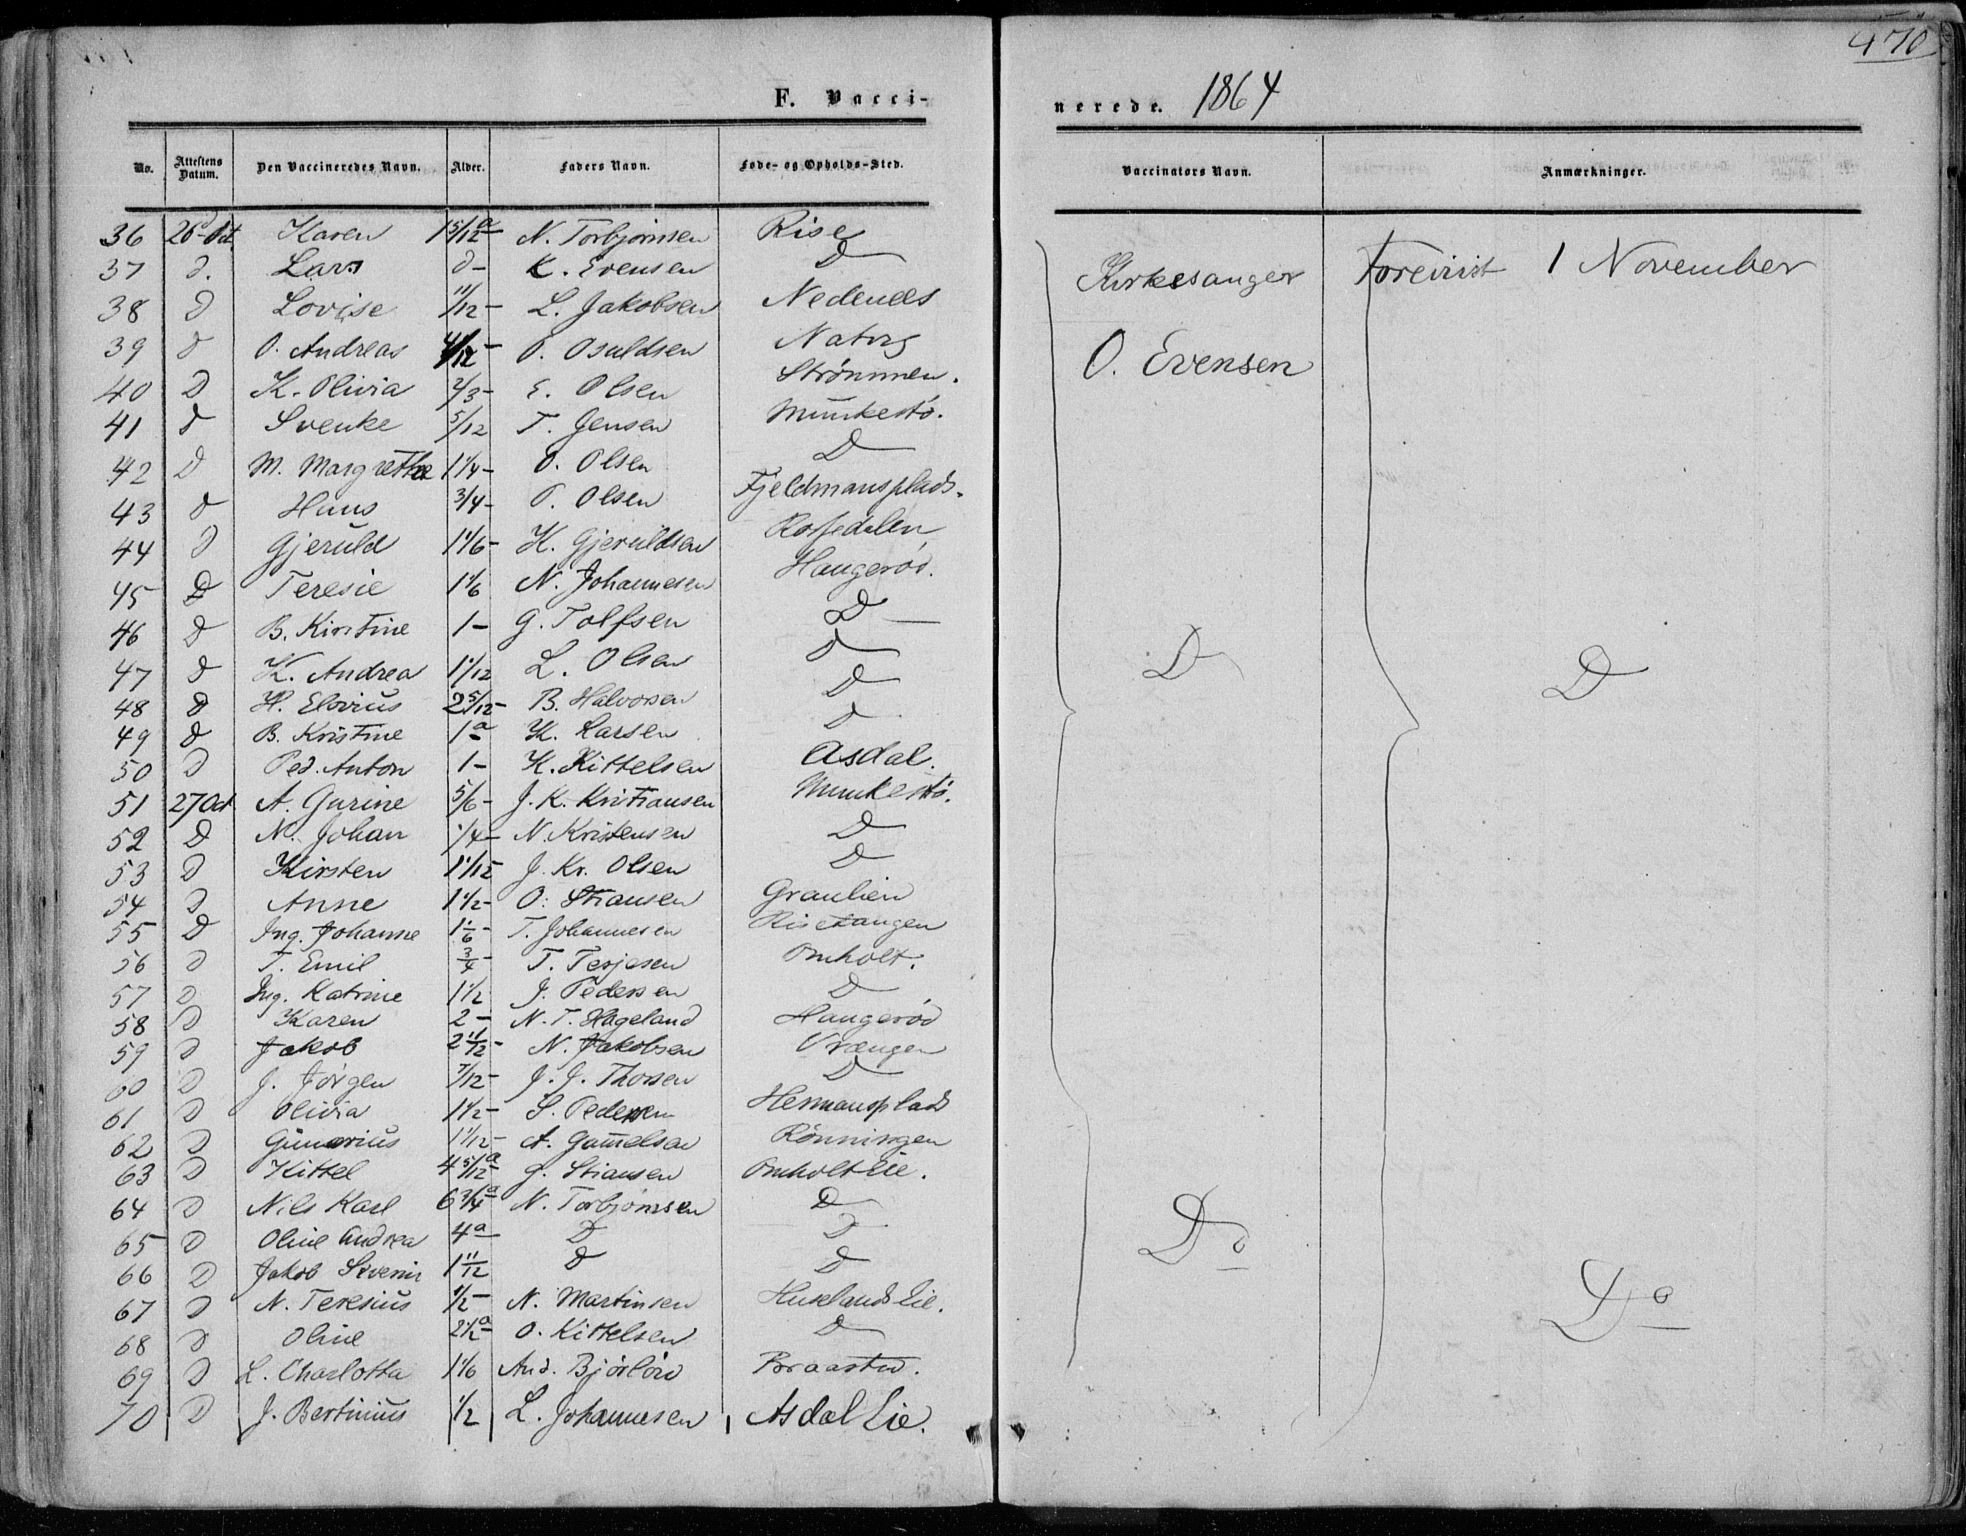 470
F. Vacci-
nerede. 1864
No. Attestens Datum. Den Vaccineredes Navn. Alder. Faders Navn. Føde- og Opholds-Sted. Vaccinators Navn. Anmærkninger.
36 26-Oct. Karen 1 5/12 a N. Torbjørnsen Rise
37 D. Lars D- K. Evensen D
Kirkesanger Forevist 1 November
38 D Lovise 11/12- L. Jakobsen Nedenæs
39 D O. Andreas 4/12- O. Osuldsen Natvig
O. Evensen
40 D K. Olivia 2/3- E. Olsen Strømmen.
41 D Svenke 5/12 T. Jensen Munkestø.
42 D M. Margrethe 1 1/4- O. Olsen D
43 D Hans 3/4- O. Olsen Fjeldmansplads.
44 D Gjeruld 1 1/6- K. Gjeruldsen Rossedalen
45 D Teresie 1 1/6 N. Johannesen Haugerød.
46 D B. Kirstine 1- G. Tolfsen D
47 D K. Andrea 1 1/12 L. Olsen D
D D
48 D H. Elovius 2 5/12- B. Halvorsen D
49 D B. Kristine 1 a K. Larsen D
50 D Ped. Anton 1- K. Kittelsen Asdal.
51 27 Oct A. Gurine 5/6- J. K. Kristiansen Munkestø.
52 D N. Johan 1/4- N. Kristensen D
53 D Kirsten 1 1/12 J. Kr. Olsen D
54 D Anne 1 1/2- O. Stiansen Graulien
55 D Ing. Johanne 1 1/6- T. Johannesen Risetangen
56 D T. Emil 3/4- T. Terjesen Omholt.
57 D Ing. Katrine 1 1/2 J. Pedersen D
58 D Karen 2- N. T. Hageland Haugerød
59 D Jakob 2 11/12- N. Jakobsen Vrængen
60 D J. Jørgen 7/12- J. J. Thorsen D
61 D Olivia 1 1/2- S. Pedersen Hermansplads
62 D Gunarius 1 1/12- A. Gamelsen Rønningen
63 D Kittel 4 5/12 a G. Stiansen Omholt Eie.
64 D Nils Karl 6 3/4 a N. Torbjørnsen D
65 D Oline Andrea 4 a D D
Do
66 D Jakob Severin 1 11/12 D D
67 D N. Teresius 1/2- N. Martinsen Huslands Eie.
Do
68 D Oline 2 1/2 a O. Kittelsen D
69 D L. Charlotta 1 1/6 And. Bjørløv Braastad.
70 D J. Bertinius 1/2 L. Johannesen Asdal Eie.